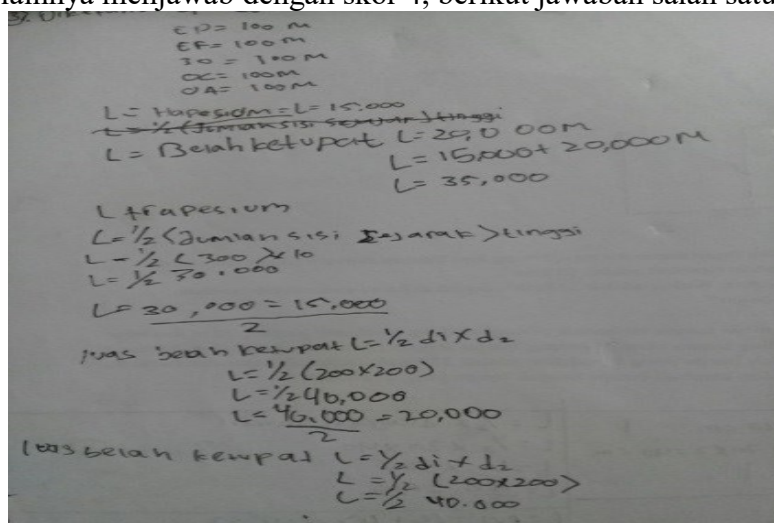 menjawab dengan skor 4, berikut jawaban salah satu
ED = 100 M
EF = 100 m
30 = 100 M
OC = 100M
OA = 100M
L = L = 15.000
L = ½ (Jumlah sisi ) tinggi
L = Belah ketupat L = 20,000m
L = 15,000 + 20,000 M
L = 35,000
L trapesium
L = ½ (Jumlah sisi Sejarak) tinggi
L = ½ (300) x 10
L = ½ 30.000
L = 30,000 = 15,000
2
luas belah ketupat L = ½ d1 x d2
L = ½ (200x200)
L = ½ 40,000
L = 40.000 = 20,000
2
luas belah ketupat L = ½ d1 x d2
L = ½ (200x200)
L = ½ 40.000